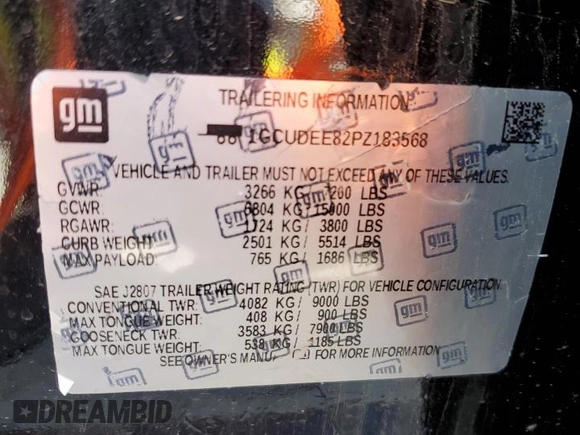 gm
TRAILERING INFORMATION
1GCUDEE82PZ183568
VEHICLE AND TRAILER MUST NOT EXCEED ANY OF THESE VALUES.
GVWR: 3266 KG / 7200 LBS
GCWR: 6804 KG / 15000 LBS
RGAWR: 1724 KG / 3800 LBS
CURB WEIGHT: 2501 KG / 5514 LBS
MAX PAYLOAD: 765 KG / 1686 LBS
SAE J2807 TRAILER WEIGHT RATING (TWR) FOR VEHICLE CONFIGURATION
CONVENTIONAL TWR: 4082 KG / 9000 LBS
MAX TONGUE WEIGHT: 408 KG / 900 LBS
GOOSENECK TWR: 3583 KG / 7900 LBS
MAX TONGUE WEIGHT: 538 KG / 1185 LBS
SEE OWNER'S MANUAL FOR MORE INFORMATION
DREAMBID